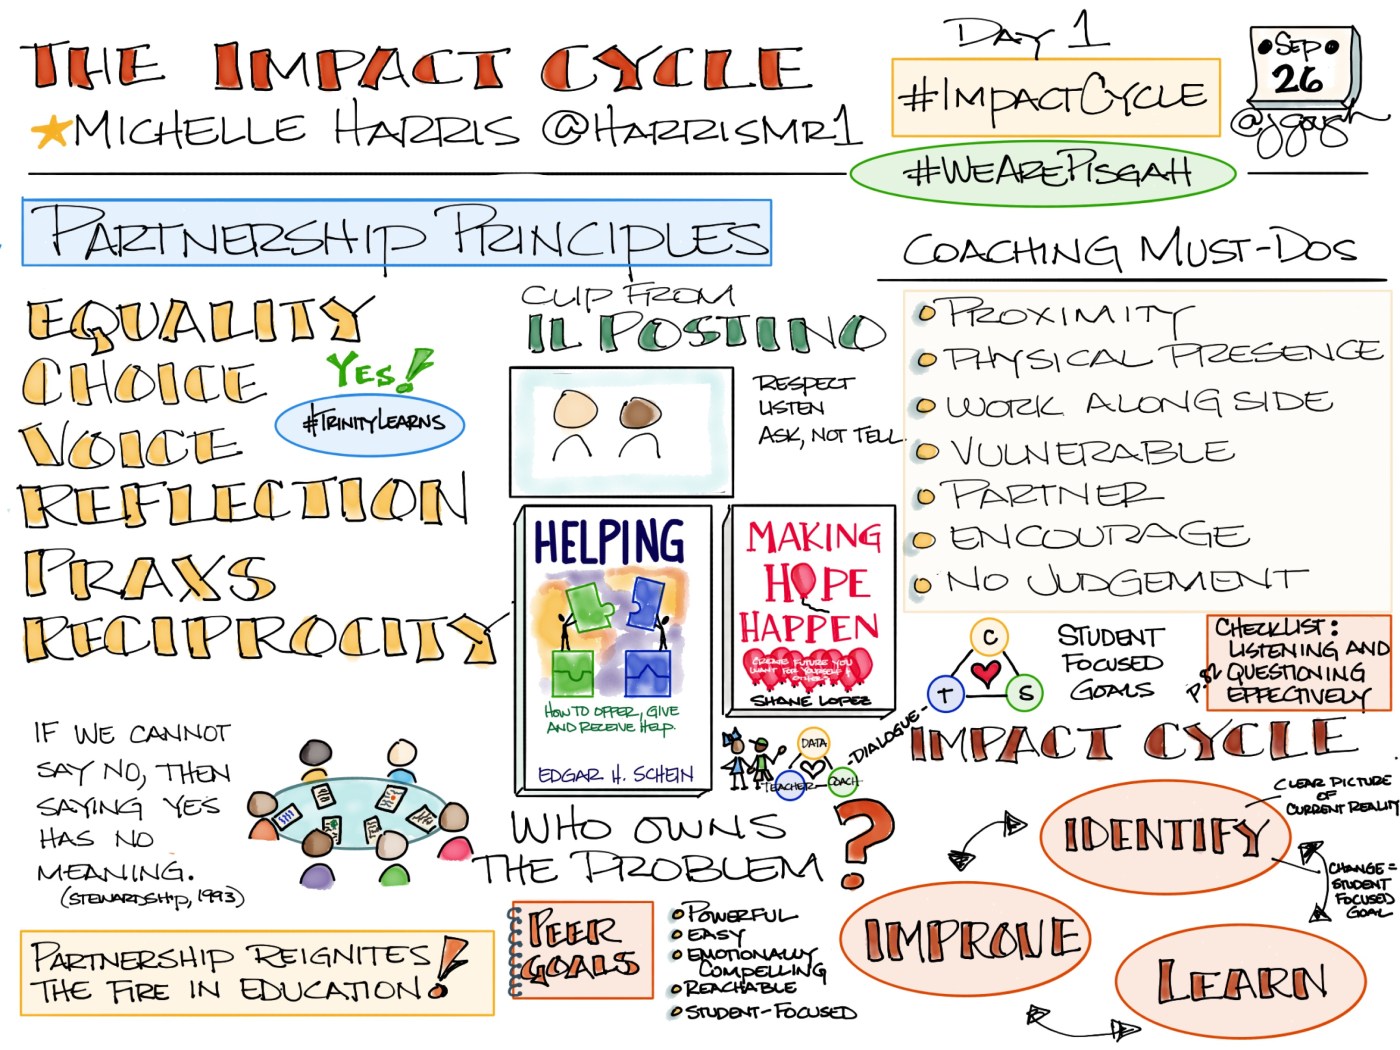 THE IMPACT CYCLE
★MICHELLE HARRIS @HARRISMR1
DAY 1
#IMPACTCYCLE
#WEAREPISGAH
SEP
26
@jgough
PARTNERSHIP PRINCIPLES
EQUALITY
CHOICE
VOICE
REFLECTION
PRAXS
RECIPROCITY
YES!
#TRINITYLEARNS
CLIP FROM
IL POSTINO
RESPECT
LISTEN
ASK, NOT TELL.
HELPING
HOW TO OFFER, GIVE
AND RECEIVE HELP.
EDGAR H. SCHEIN
MAKING
HOPE
HAPPEN
CREATE FUTURE YOU
WANT FOR YOURSELF &
OTHERS
SHANE LOPEZ
COACHING MUST-DOS
PROXIMITY
PHYSICAL PRESENCE
WORK ALONG SIDE
VULNERABLE
PARTNER
ENCOURAGE
NO JUDGEMENT
C
T
S
STUDENT
FOCUSED
GOALS
CHECKLIST:
LISTENING AND
QUESTIONING
EFFECTIVELY
P. 82
IF WE CANNOT
SAY NO, THEN
SAYING YES
HAS NO
MEANING.
(STEWARDSHIP, 1993)
PARTNERSHIP REIGNITES
THE FIRE IN EDUCATION!
DATA
TEACHER
COACH
DIALOGUE
WHO OWNS
THE PROBLEM?
PEER
GOALS
POWERFUL
EASY
EMOTIONALLY
COMPELLING
REACHABLE
STUDENT-FOCUSED
IMPACT CYCLE
IDENTIFY
CLEAR PICTURE
OF
CURRENT REALITY
CHANGE =
STUDENT
FOCUSED
GOAL
IMPROVE
LEARN